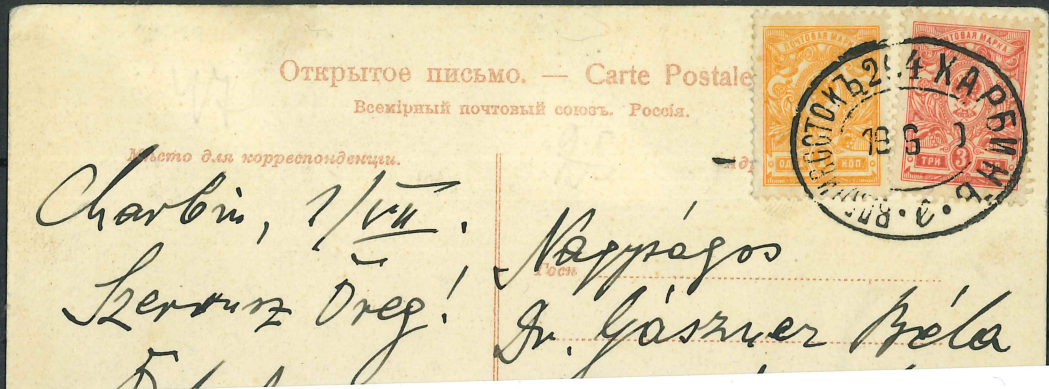 Открытое письмо. — Carte Postale
Всемірный почтовый союзъ. Россія.
Мѣсто для корреспонденціи.
ПОЧТОВАЯ МАРКА
ОДНА КОП.
ПОЧТОВАЯ МАРКА
ТРИ 3
ХАРБИНЪ
ВЛАДИВОСТОКЪ
Charbin, 1/VII.
Szervusz Öreg!
Nagyságos
Dr. Gászner Béla